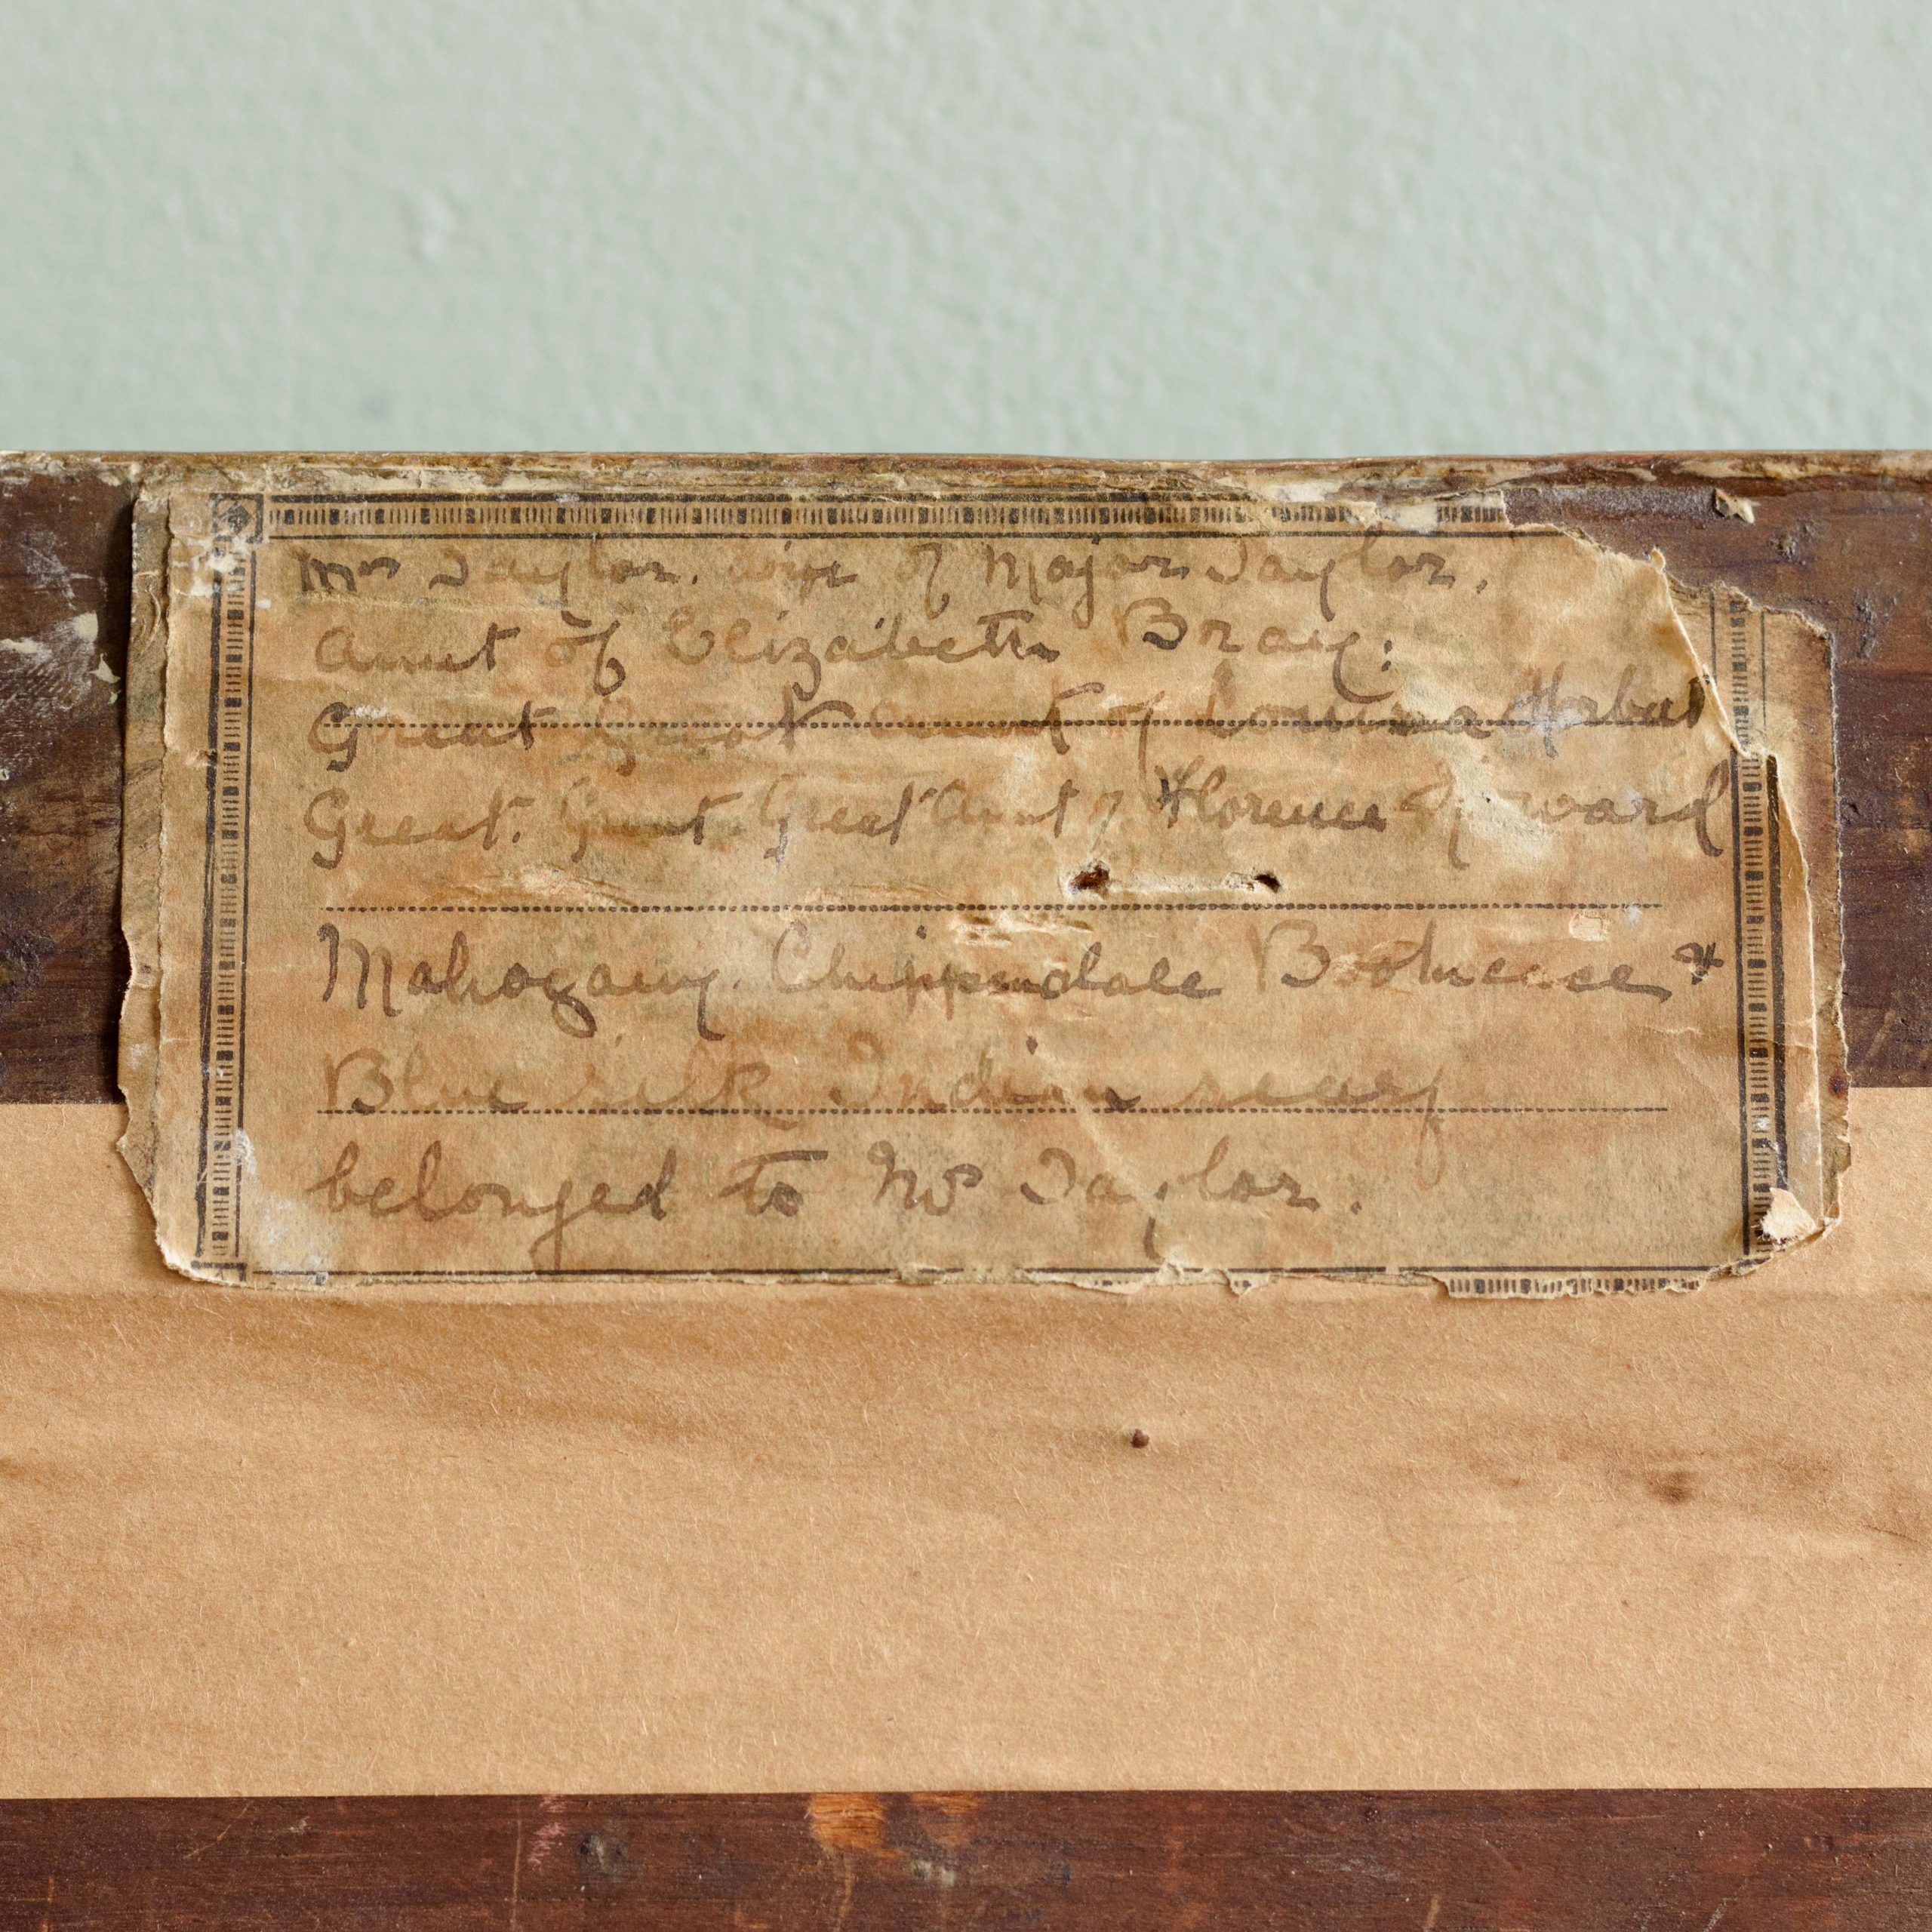 Mrs Taylor. wife of Major Taylor,
Aunt of Elizabeth Bray:
Great Great Aunt of Louisa
Great. Great Great Aunt of Florence
Mahogany. Chippendale Bookcase &
Blue silk Indian scarf
belonged to Mrs Taylor.